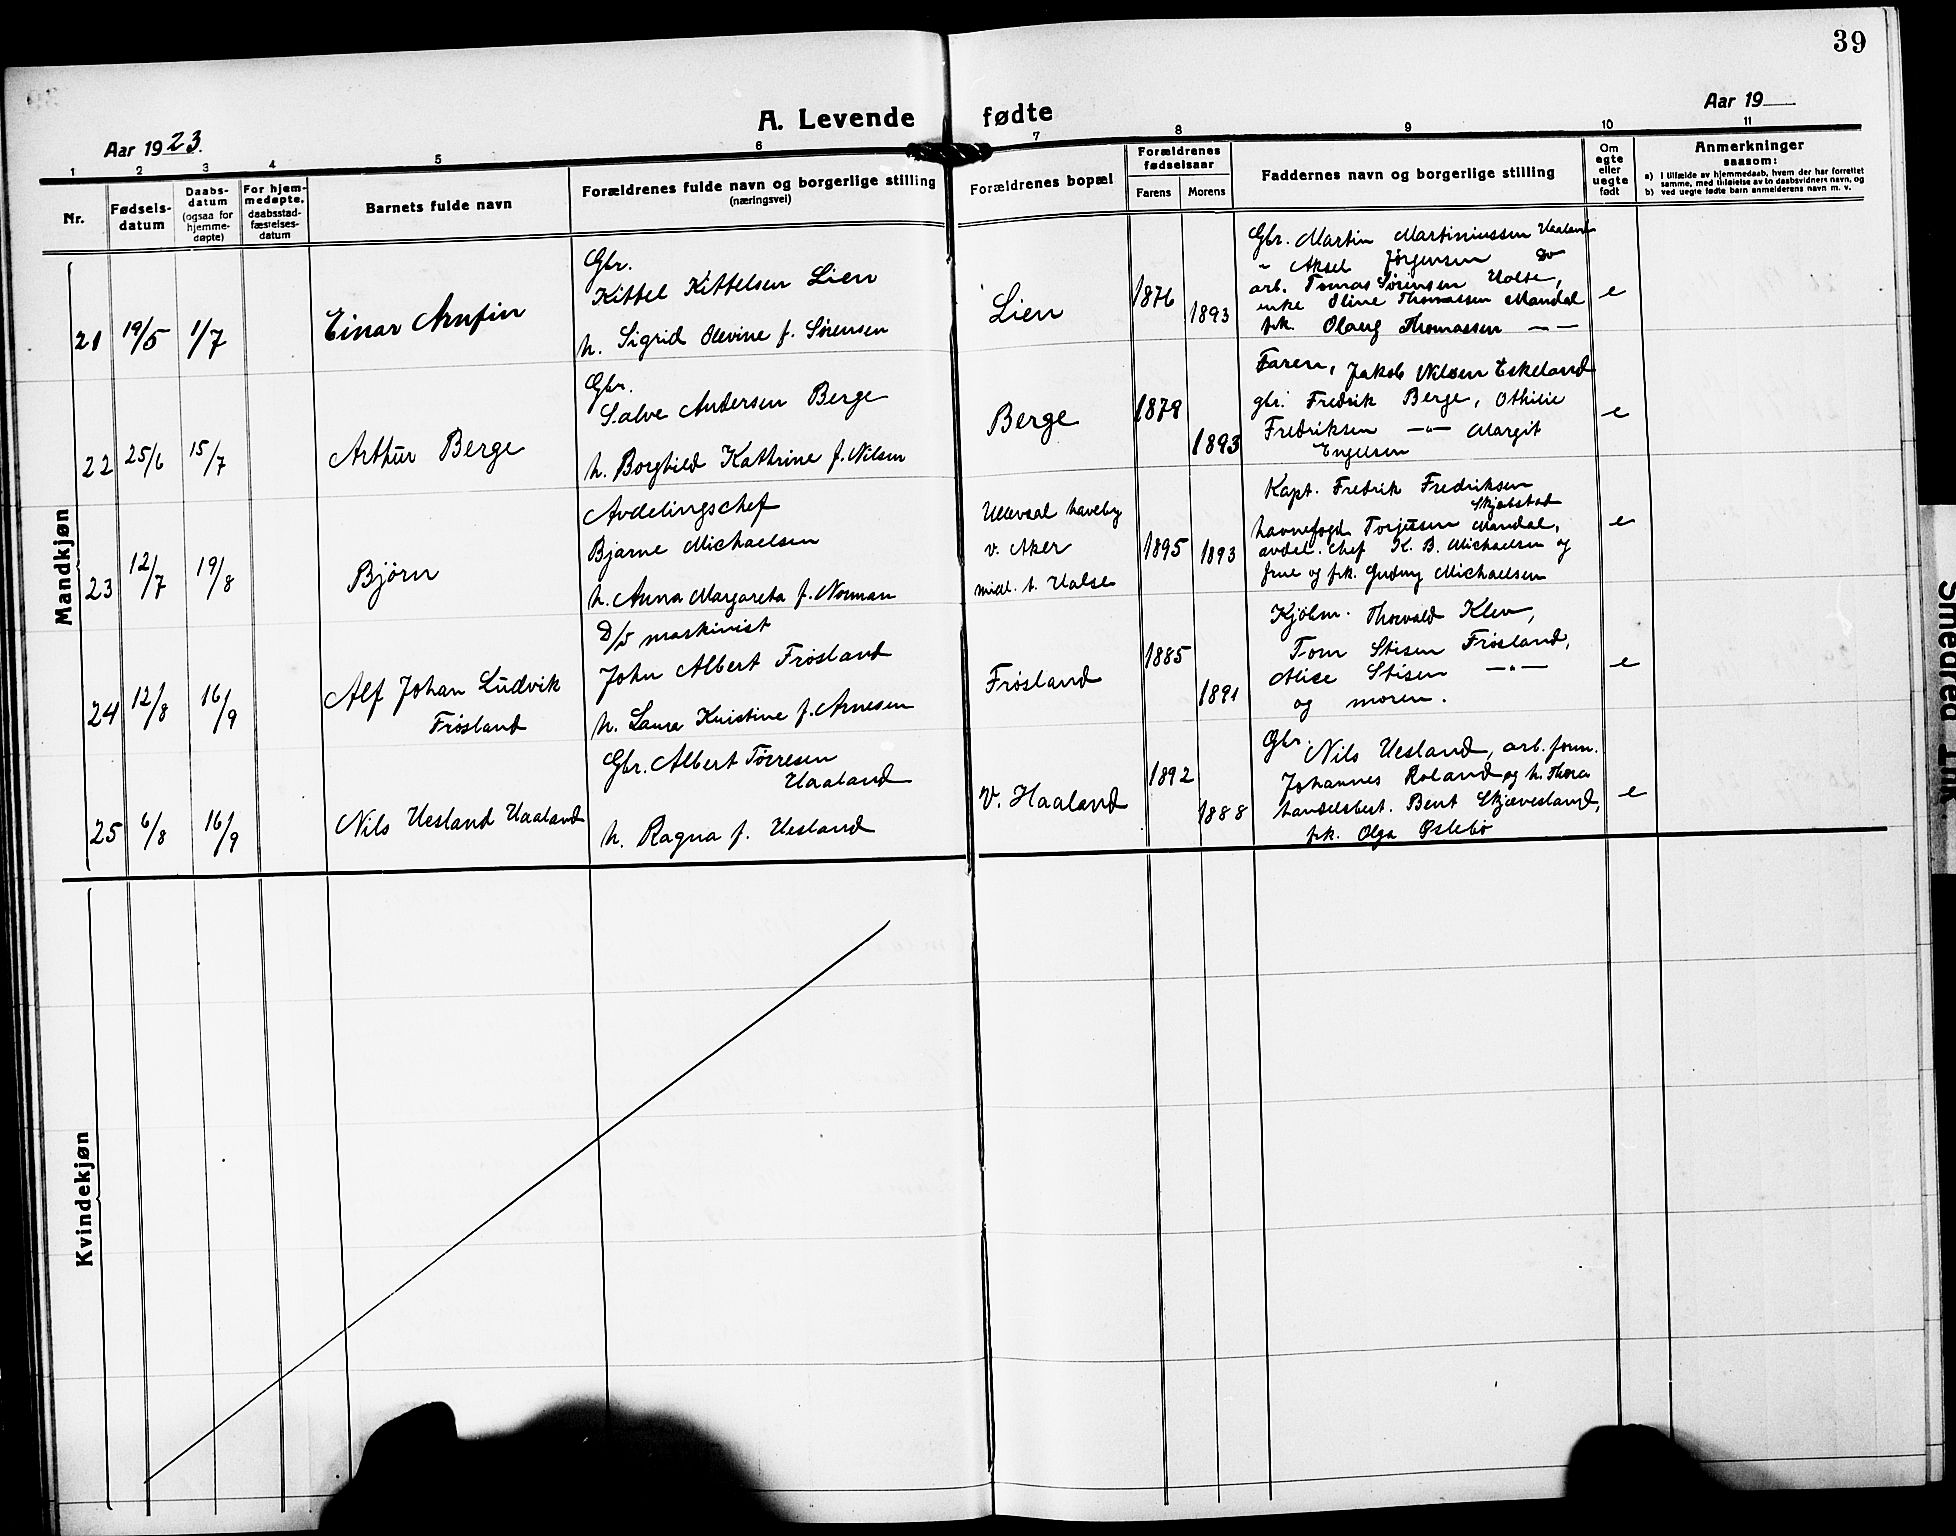 39
A. Levende fødte
Aar 1923.
Aar 19
1 2 3 4 5 6 7 8 9 10 11
Nr.
Fødsels-
datum
Daabs-
datum
(ogsaa for
hjemme-
døpte)
For hjem-
medøpte.
daabsstad-
fæstelses-
datum
Barnets fulde navn
Forældrenes fulde navn og borgerlige stilling
(næringsvei)
Forældrenes bopæl
Forældrenes
fødselsaar
Farens Morens
Faddernes navn og borgerlige stilling
Om
egte
eller
uegte
født
Anmerkninger
saasom:
a) i tilfælde av hjemmedaab, hvem der har forrettet
samme, med tilføielse av to daabsvidners navn, og
b) ved uegte fødte barn anmelderens navn m. v.
Mandkjøn
21 19/5 1/7
Einar Arnfin
Gbr.
Kittel Kittelsen Lien
h. Sigrid Olevine f. Sørensen
Lien
1876 1893
Gbr. Martin Martiniussen Uaaland
" Aksel Jørgensen Do
arb. Tomas Sørensen Valse,
enke Oline Thomassen Mandal
frk. Olaug Thomassen — —
e
22 25/6 15/7
Arthur Berge
Gbr.
Salve Andersen Berge
h. Borghild Kathrine f. Nilsen
Berge
1879 1893
Faren, Jakob Nilsen Eskeland
gbr. Fredrik Berge, Othilie
Fredriksen —"— Margit
Engelsen
e
23 12/7 19/8
Bjørn
Avdelingschef
Bjarne Michaelsen
h. Anna Margareta f. Norman
Ullevaal haveby
v. Aker
midl. t. Valse
1895 1893
Kapt. Fredrik Fredriksen
Skjebstad
havnefogd Torjusen Mandal,
avdel. chef K. B. Michaelsen og
frue og frk. Gudny Michaelsen
e
24 12/8 16/9
Alf Johan Ludvik
Frøsland
D/S maskinist
John Albert Frøsland
h. Laura Kristine f. Arnesen
Frøsland
1885 1891
Kjøbm. Thorvald Klev,
Tom Stisen Frøsland,
Alice Stisen —"—
og moren.
e
25 6/8 16/9
Nils Uesland Uaaland
Gbr. Albert Tørresen
Uaaland
h. Ragna f. Uesland
V. Haaland
1892 1888
Gbr. Nils Uesland, arb. form.
Johannes Roland og h. Thora
handelsbert. Bent Skjævesland,
frk. Olga Øslebø
e
Kvindekjøn